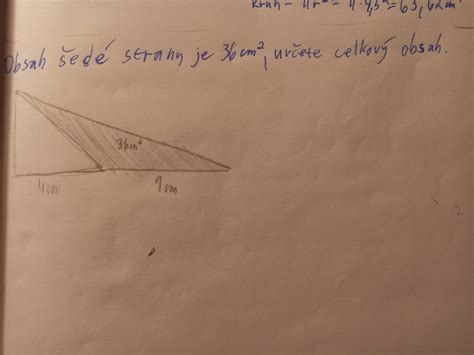 Kruh - πr² = π·4,5² = 63,62cm²
Obsah šedé strany je 36cm², určete celkový obsah.
36cm²
4cm 9cm